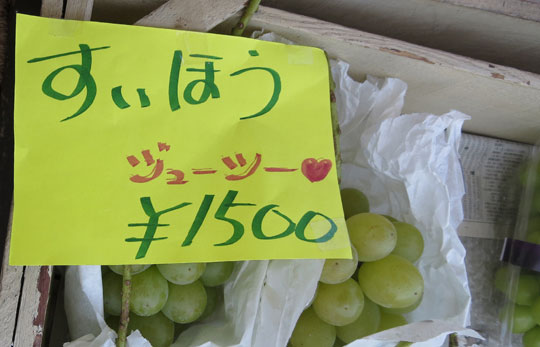 すぃほう
ジューツー♥
¥1500